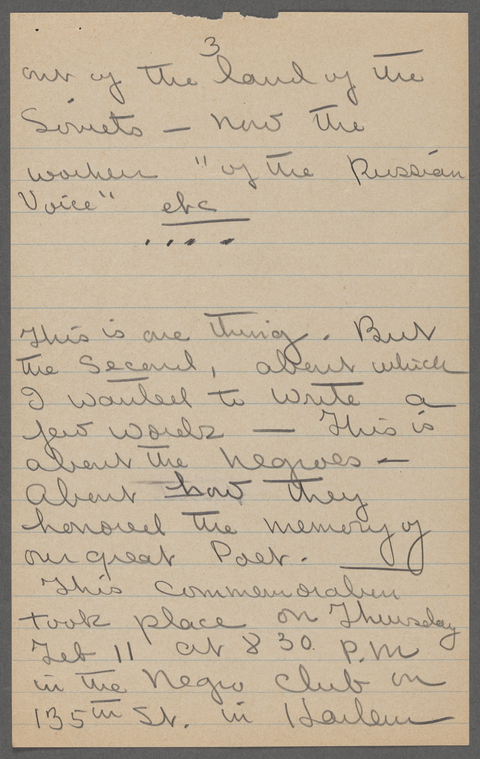 3
out of the land of the
Soviets — now the
workers "of the Russian
Voice" etc
This is one thing. But
the Second, about which
I wanted to write a
few words — This is
about the Negroes —
About how they
honored the memory of
our great Poet.
This commemoration
took place on Thursday
Feb 11 at 8 30. P.M
in the Negro Club on
135th St. in Harlem